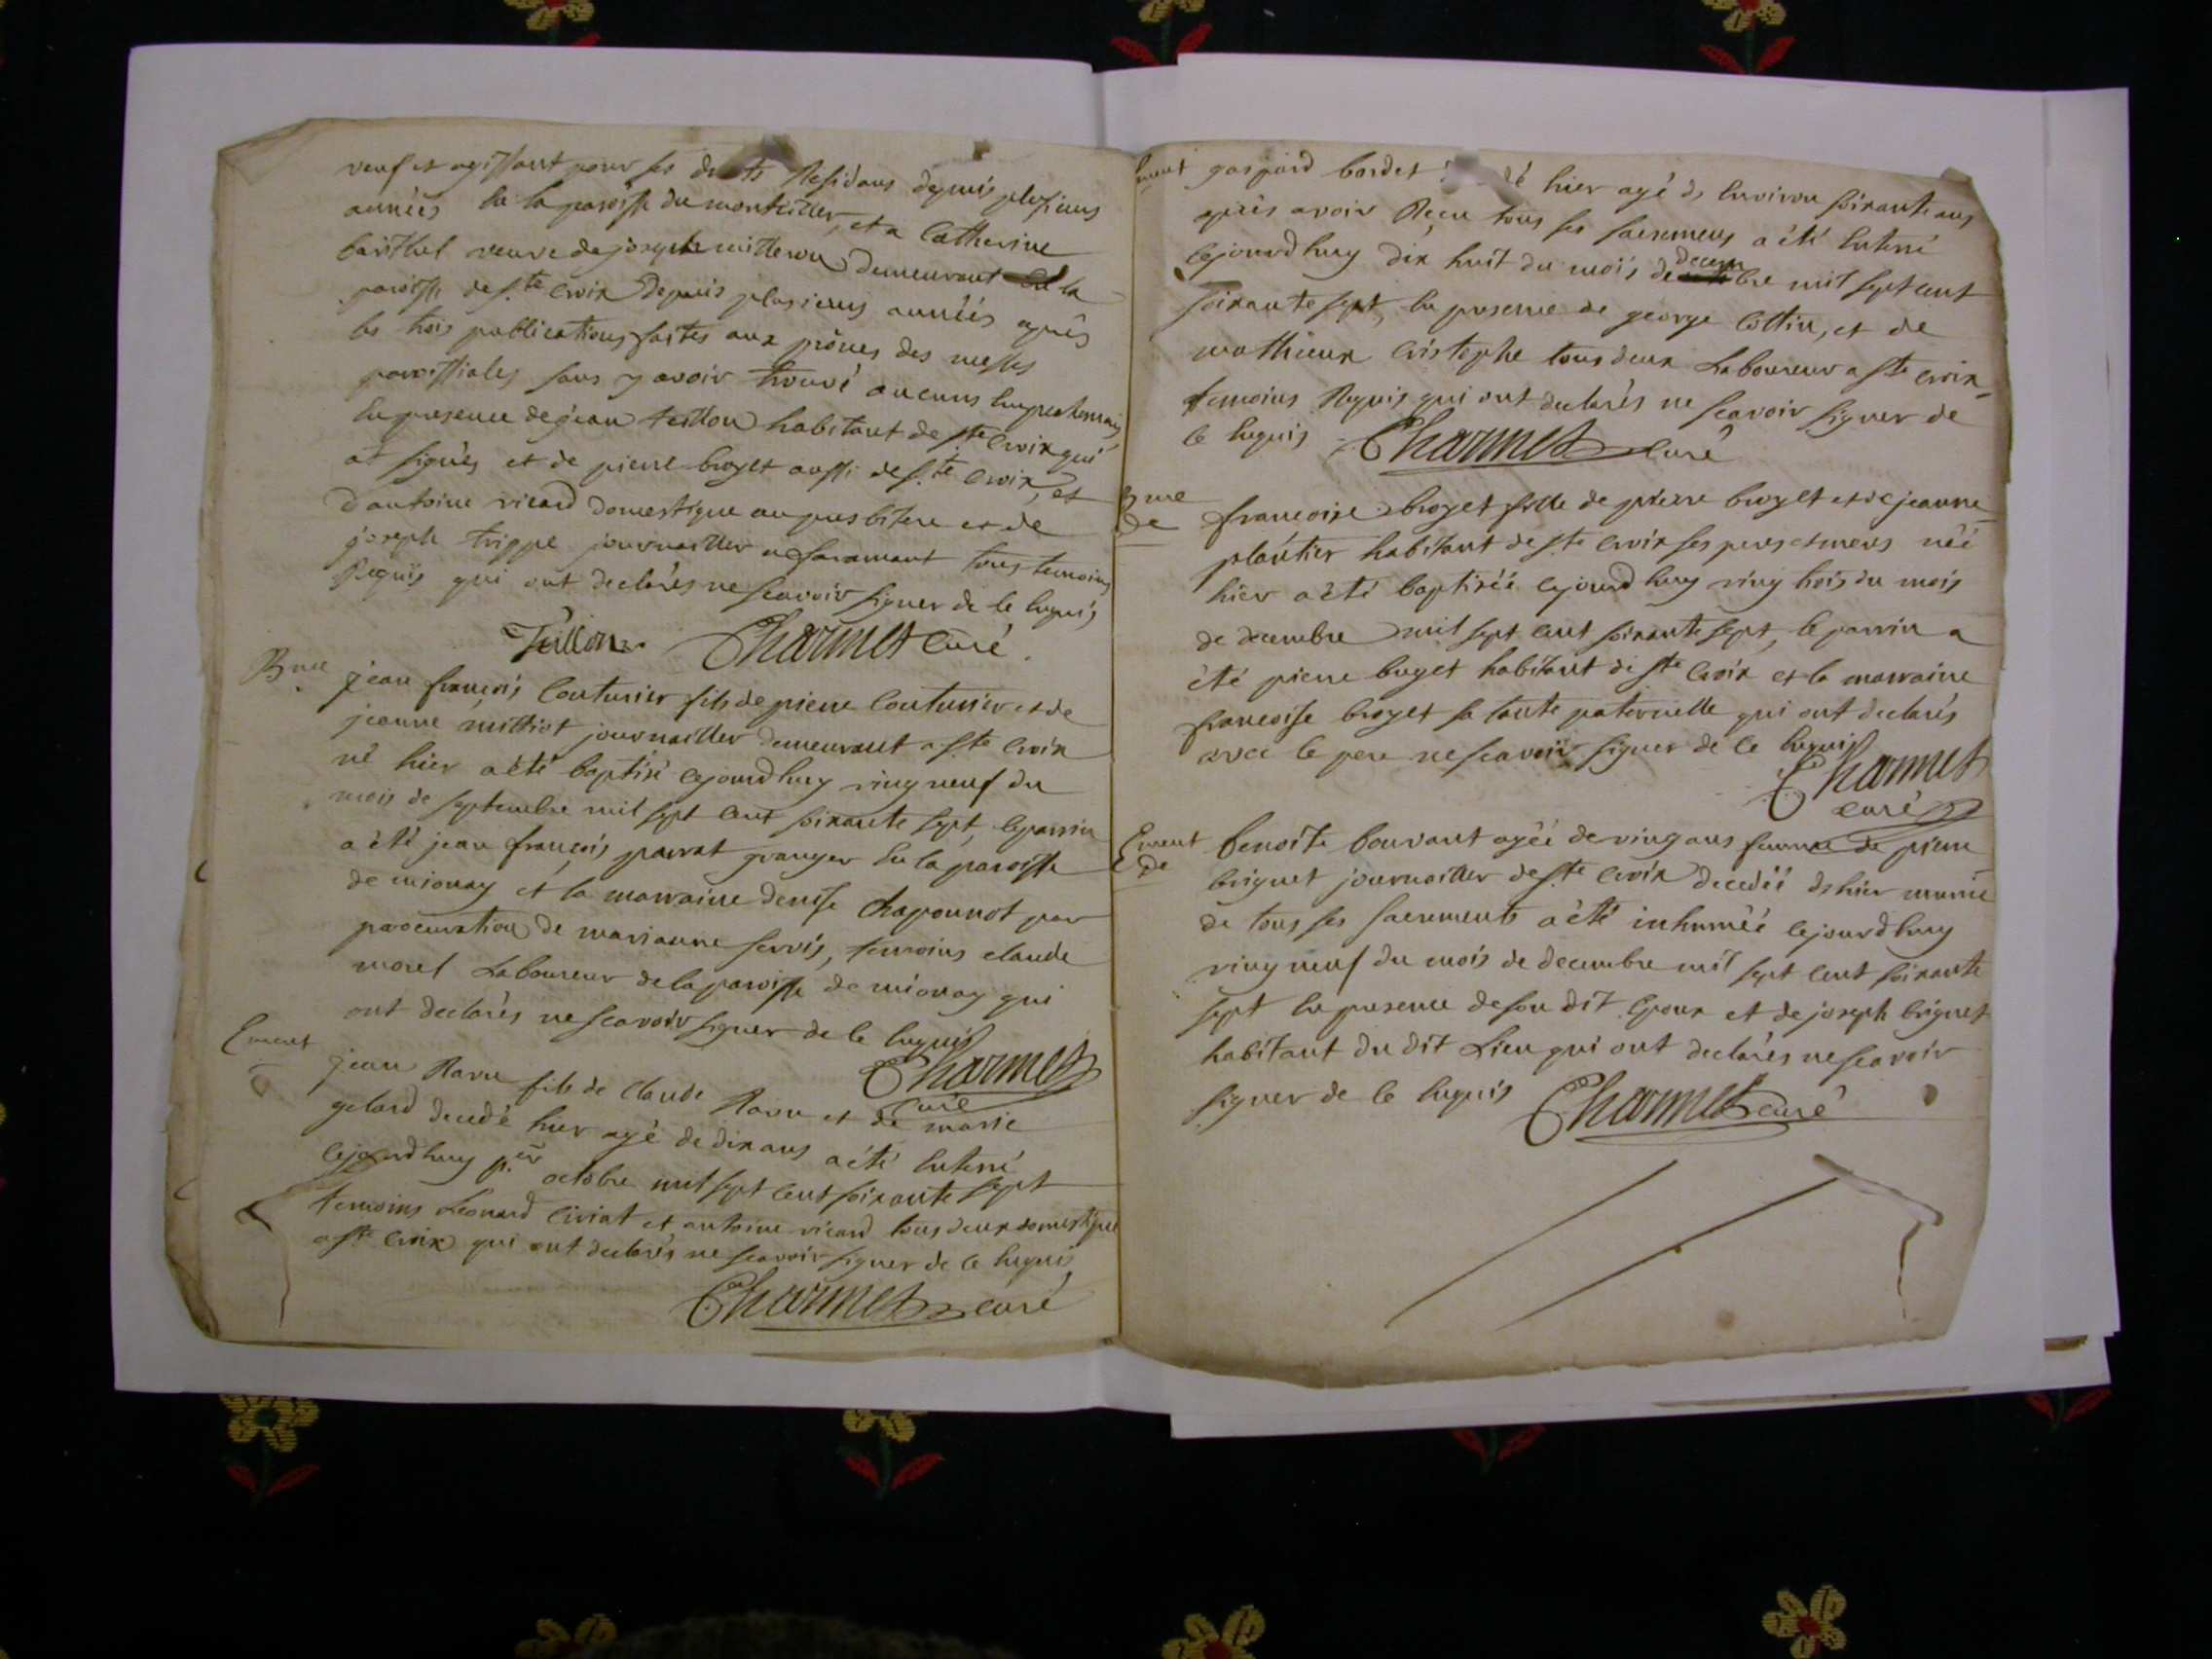 veuf et agissant pour ses droits Residans depuis plusieurs
années en la paroisse du montellier, et a Catherine
barthel veuve de joseph milleron demeurant en la
paroisse de s.te Croix Depuis plusieurs années après
les trois publications faites aux prônes des messes
paroissiales sans y avoir trouvé aucuns empechemens
en presence de jean teillon habitant de ste Croix qui
at signés et de pierre broyet aussi de s.te Croix, et
d'antoine ricard Domestique au presbitere et de
joseph trippe journaillier tous temoins
Requis qui ont declarés ne scavoir signer de ce enquis
Teillon Charmet Curé
B me jean françois Couturier fils de pierre Couturier et de
jeanne milliat journaillier demeurant a ste Croix
né hier a été baptisé cejourdhuy ving neuf du
mois de septembre mil sept cent soixante sept, le parrin
a été jean françois parrat granger en la paroisse
de mionay et la marraine denise Chaponnot par
procuration de marianne servis, temoins claude
morel Laboureur de la paroisse de mionay qui
ont declarés ne scavoir signer de ce enquis
Charmet
Curé
E ment jean Ravu fils de Claude Ravu et de marie
gelard decedé hier agé de dix ans a été enterré
cejourdhuy p.er octobre mil sept cent soixante sept
temoins Léonard Civiat et antoine ricard tous deux domestique
a ste Croix qui ont declarés ne scavoir signer de ce enquis
Charmet curé
ment gaspard bardet hier agé de environ soixante ans
après avoir Reçu tous ses sacremens a été enterré
cejourdhuy dix huit du mois de decembre mil sept cent
soixante sept, en presence de george Cottin, et de
mathieux Cristophe tous deux Laboureur a ste Croix
temoins Requis qui ont declarés ne scavoir signer de
ce enquis Charmet Curé
B me
de françoise broyet fille de pierre broyet et de jeanne
plantier habitant de ste Croix ses peres et meres née
hier a été baptisée cejourdhuy ving trois du mois
de decembre mil sept cent soixante sept, le parrin a
été pierre buget habitant de ste Croix et la marraine
françoise broyet sa tante paternelle qui ont declarés
avec le pere ne scavoir signer de ce enquis
Charmet
curé
E ment
de benoite bouvant agée de ving ans femme de pierre
brignet journaillier de s.te Croix decedée d'hier munie
de tous ses sacrements a été inhumée cejourdhuy
ving neuf du mois de decembre mil sept cent soixante
sept en presence de son dit Epoux et de joseph brignet
habitant du dit Lieu qui ont declarés ne scavoir
signer de ce enquis Charmet curé